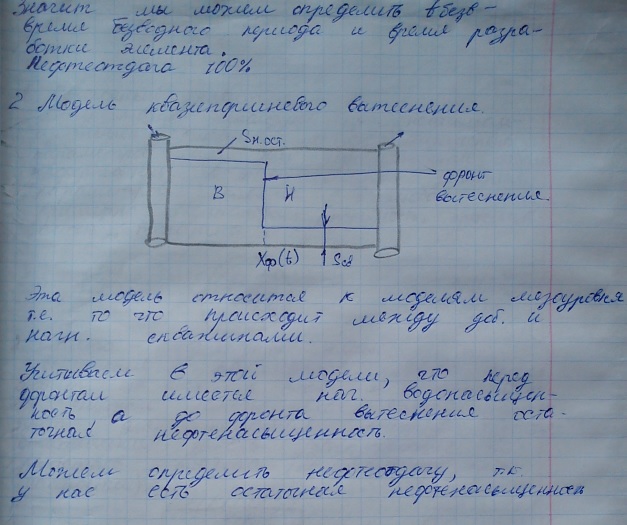 Значит мы можем определить в безв-
время безводного периода и время разра-
ботки элемента.
Нефтеотдача 100%
2 Модель квазипоршневого вытеснения.
Sн.ост.
В Н
фронт
вытеснения.
Xф(t) Sсв
Эта модель относится к моделям мезоуровня
т.е. то что происходит между доб. и
нагн. скважинами.
Учитываем в этой модели, что перед
фронтам имеется нач. водонасыщен-
ность а до фронта вытеснения оста-
точная нефтенасыщенность.
Можем определить нефтеотдачу, т.к.
у нас есть остаточная нефтенасыщенность